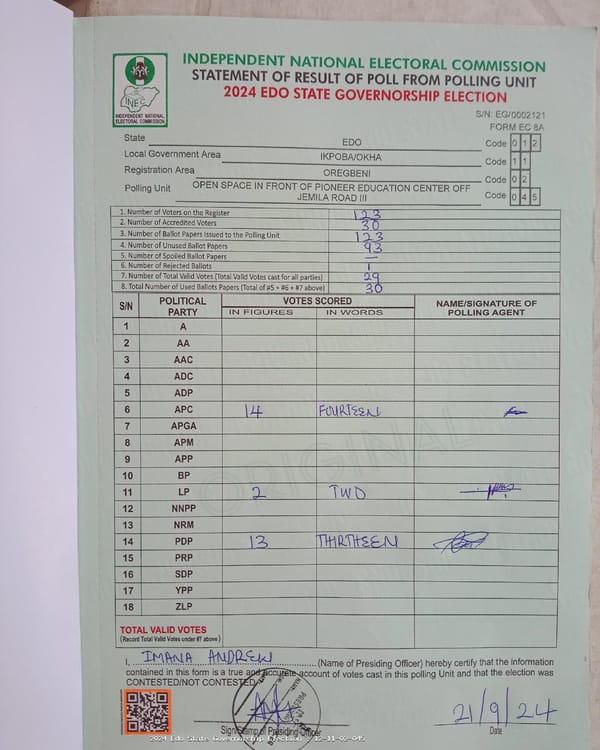 INDEPENDENT NATIONAL ELECTORAL COMMISSION
STATEMENT OF RESULT OF POLL FROM POLLING UNIT
2024 EDO STATE GOVERNORSHIP ELECTION
INEC
INDEPENDENT NATIONAL
ELECTORAL COMMISSION
S/N: EG/0002121
FORM EC 8A
State EDO Code 0 1 2
Local Government Area IKPOBA/OKHA Code 1 1
Registration Area OREGBENI Code 0 2
Polling Unit OPEN SPACE IN FRONT OF PIONEER EDUCATION CENTER OFF
JEMILA ROAD III Code 0 4 5
1. Number of Voters on the Register 123
2. Number of Accredited Voters 30
3. Number of Ballot Papers Issued to the Polling Unit 123
4. Number of Unused Ballot Papers 93
5. Number of Spoiled Ballot Papers —
6. Number of Rejected Ballots 1
7. Number of Total Valid Votes (Total Valid Votes cast for all parties) 29
8. Total Number of Used Ballots Papers (Total of #5 + #6 + #7 above) 30
S/N POLITICAL PARTY VOTES SCORED NAME/SIGNATURE OF POLLING AGENT
IN FIGURES IN WORDS
1 A
2 AA
3 AAC
4 ADC
5 ADP
6 APC 14 FOURTEEN
7 APGA
8 APM
9 APP
10 BP
11 LP 2 TWO
12 NNPP
13 NRM
14 PDP 13 THIRTHEEN
15 PRP
16 SDP
17 YPP
18 ZLP
ORIGINAL
TOTAL VALID VOTES
(Record Total Valid Votes under #7 above)
I, IMANA ANDREW (Name of Presiding Officer) hereby certify that the information
contained in this form is a true and accurate account of votes cast in this polling Unit and that the election was
CONTESTED/NOT CONTESTED
21/9/24
Sign/Stamp of Presiding Officer Date
2024 Edo State Governorship Election - 12-11-02-045